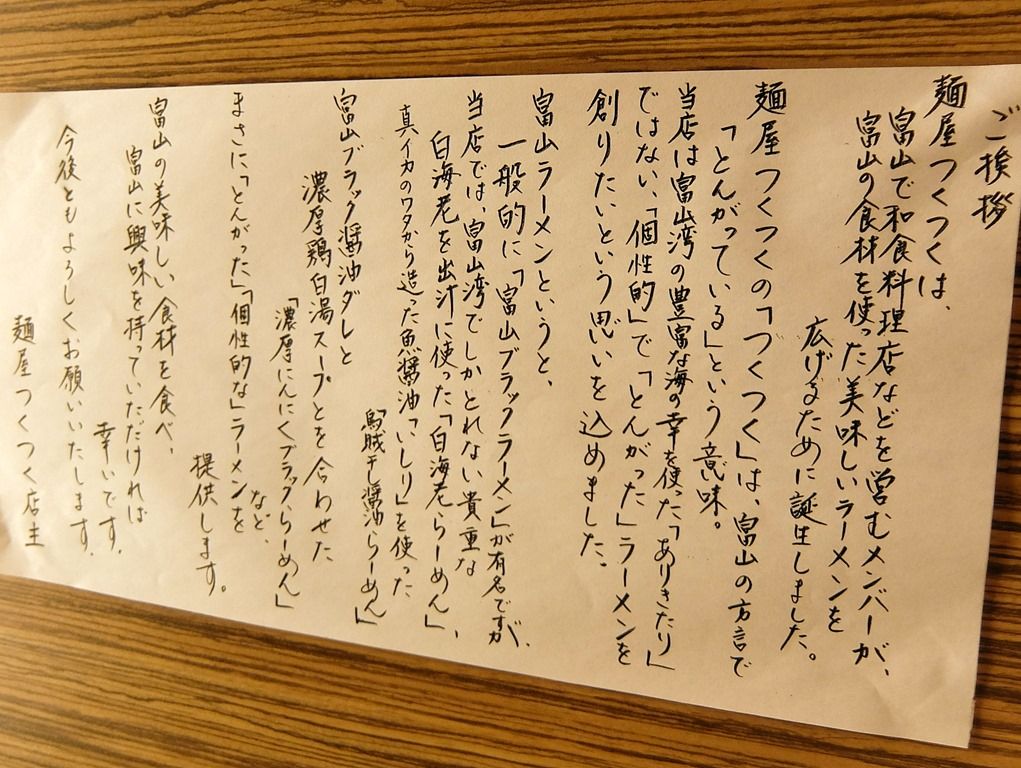 ご挨拶
麺屋つくつくは、
富山で和食料理店などを営むメンバーが、
富山の食材を使った美味しいラーメンを
広げるために誕生しました。
麺屋つくつくの「つくつく」は、富山の方言で
「とんがっている」という意味。
当店は富山湾の豊富な海の幸を使った「ありきたり」
ではない、「個性的」で「とんがった」ラーメンを
創りたいという思いを込めました。
富山ラーメンというと、
一般的に「富山ブラックラーメン」が有名ですが、
当店では、富山湾でしかとれない貴重な
白海老を出汁に使った「白海老らーめん」、
真イカのワタから造った魚醤油「いしり」を使った
「烏賊干し醤油らーめん」
富山ブラック醤油ダレと
濃厚鶏白湯スープとを合わせた
「濃厚にんにくブラックらーめん」
など、
まさに「とんがった」「個性的な」ラーメンを
提供します。
富山の美味しい食材を食べ、
富山に興味を持っていただければ
幸いです。
今後ともよろしくお願いいたします。
麺屋つくつく店主